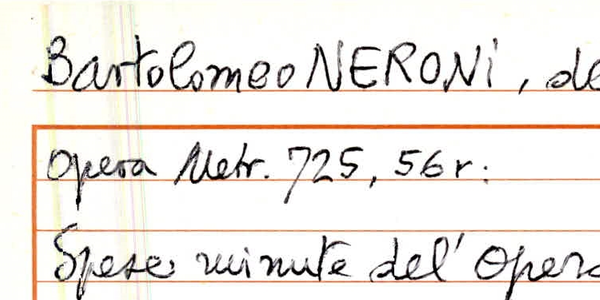 Bartolomeo NERONI, de
Opera Metr. 725, 56r:
Spese minute del' Opera